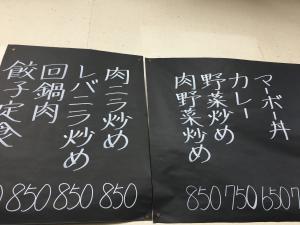 マーボー丼
カレー 650
野菜炒め 750
肉野菜炒め 850
肉ニラ炒め 850
レバニラ炒め 850
回鍋肉 850
餃子定食